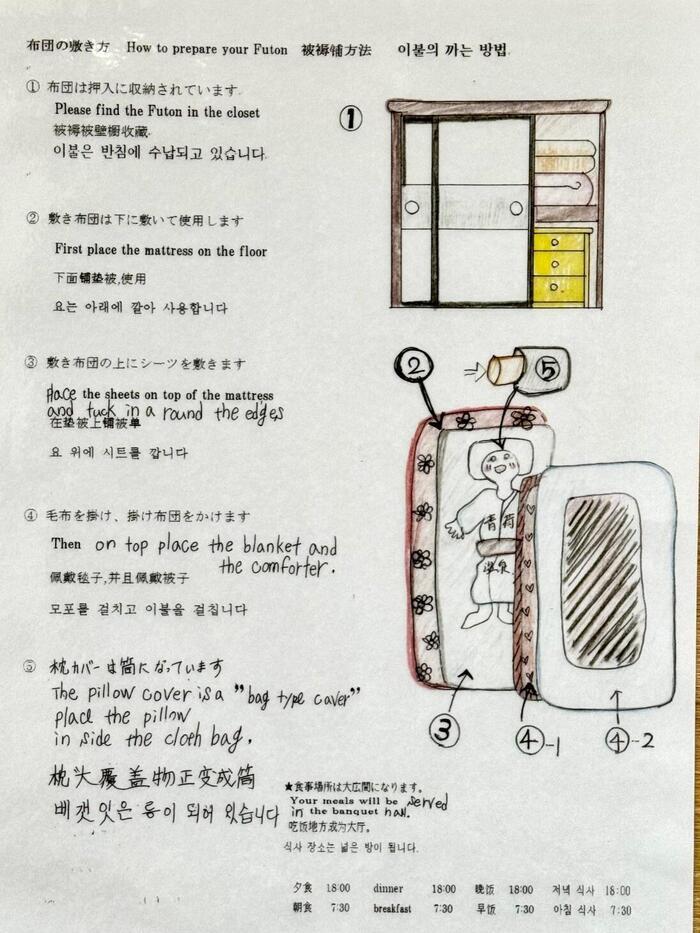 布団の敷き方 How to prepare your Futon 被褥铺方法 이불의 까는 방법
① 布団は押入に収納されています。
Please find the Futon in the closet
被褥被壁橱收藏.
이불은 반침에 수납되고 있습니다.
①
② 敷き布団は下に敷いて使用します
First place the mattress on the floor
下面铺垫被,使用
요는 아래에 깔아 사용합니다
③ 敷き布団の上にシーツを敷きます
Place the sheets on top of the mattress
and tuck in a round the edges
在垫被上铺被单
요 위에 시트를 깝니다
② ⑤
青荷
温泉
④ 毛布を掛け、掛け布団をかけます
Then on top place the blanket and
the comforter.
佩戴毯子,并且佩戴被子
모포를 걸치고 이불을 걸칩니다
⑤ 枕カバーは筒になっています
The pillow cover is a "bag type caver"
place the pillow
in side the cloth bag.
枕头覆盖物正变成筒
베갯잇은 통이 되어 있습니다
③ ④-1 ④-2
★食事場所は大広間になります。
Your meals will be served
in the banquet hall.
吃饭地方成为大厅。
식사 장소는 넓은 방이 됩니다.
夕食 18:00 dinner 18:00 晚饭 18:00 저녁 식사 18:00
朝食 7:30 breakfast 7:30 早饭 7:30 아침 식사 7:30